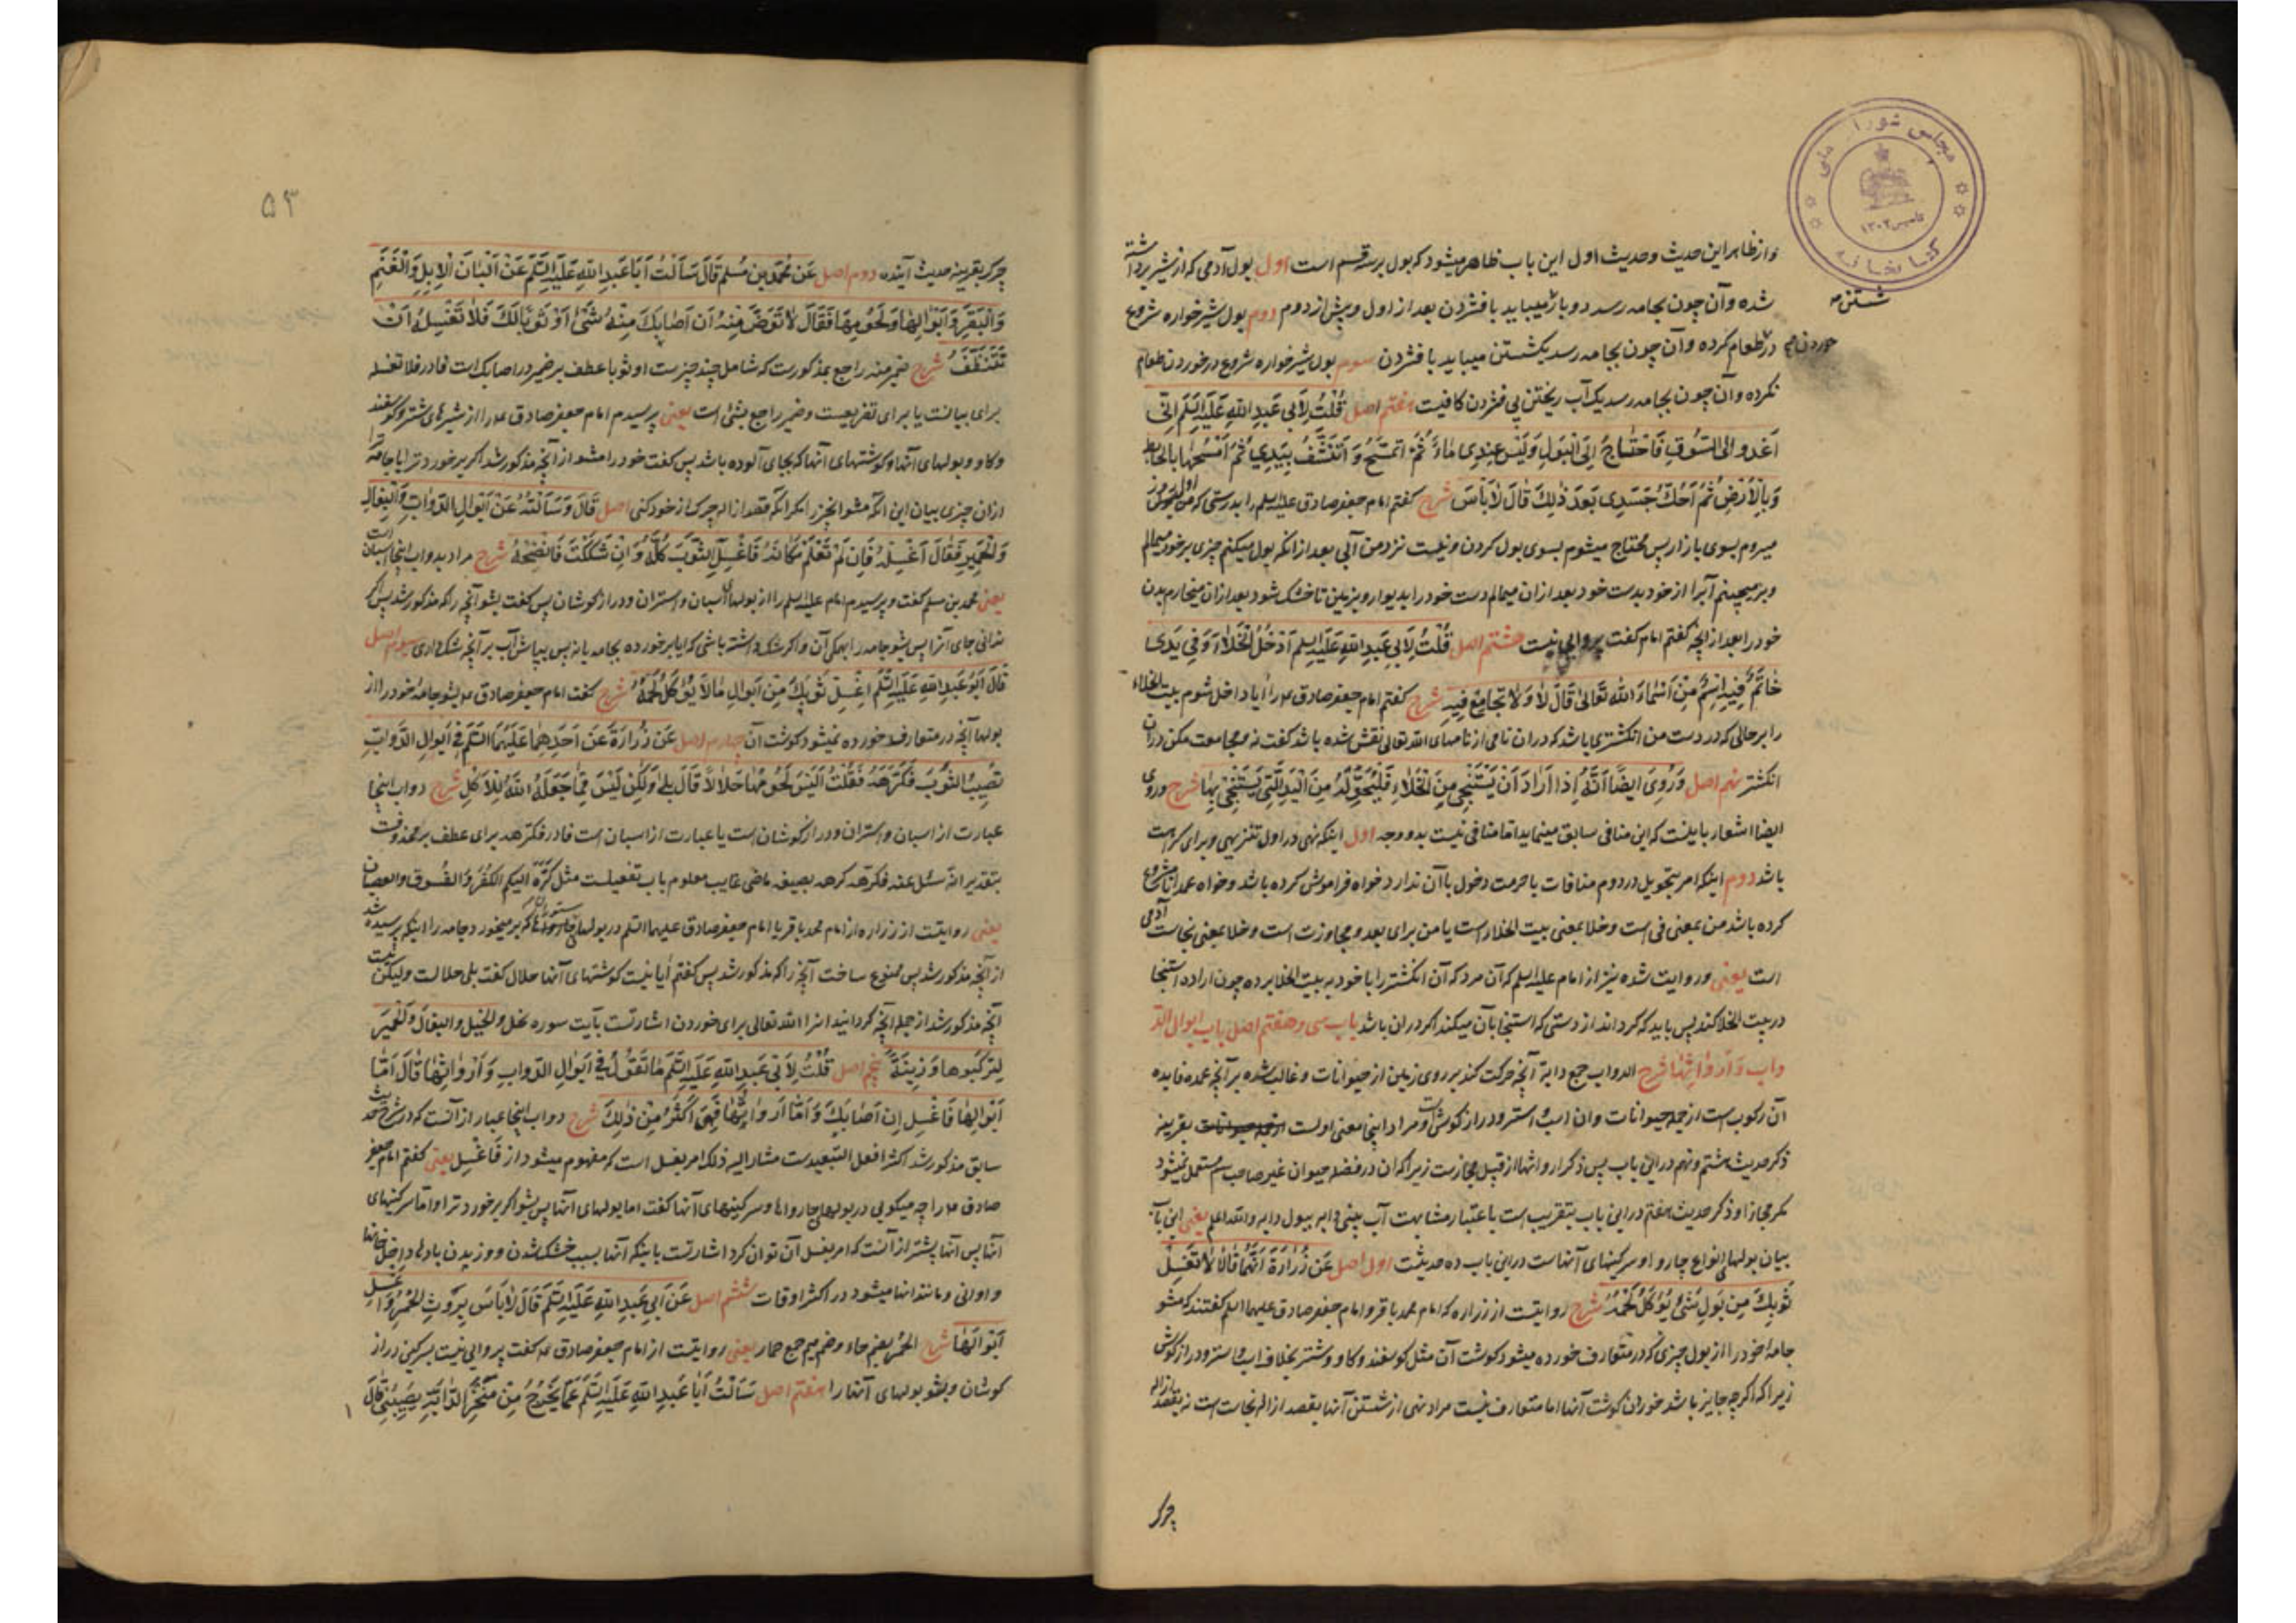 مجلس شورای ملی
کتابخانه
تاسیس ۱۳۰۲
و از ظاهر این حدیث و حدیث اول این باب ظاهر میشود که بول بر سه قسم است اول بول آدمی که از شیر برداشته
شده و آن چون بجامه رسد دو بار میباید با فشردن بعد از اول و پیش از دوم دوم بول شیرخواره شروع
شستن صح
در طعام کرده و آن چون بجامه رسد یکشستن میباید با فشردن سوم بول شیرخواره شروع در خوردن طعام
خوردن صح
نکرده و آن چون بجامه رسد یک آب ریختن بی فشردن کافیست هفتم اصل قُلْتُ لِاَبی عَبدِ اللّهِ عَلَیهِ السَّلَم اِنّی
اَغدو اِلَی السُّوقِ فَاَحْتاجُ اِلَی الْبَولِ وَلَیْسَ عِنْدِی مَاءٌ ثُمَّ اَتَمَسَّحُ وَ اَتَنَشَّفُ بِیَدِی ثُمَّ اَمْسَحُها بِالحایط
وَبِالْاَرْضِ ثُمَّ اَحُکُّ جَسَدِی بَعدَ ذٰلِکَ قٰالَ لاٰبَأسَ شرح گفتم امام جعفر صادق علیه السلم را بدرستی که من اول روز
میروم بسوی بازار پس محتاج میشوم بسوی بول کردن و نیست نزد من آبی بعد از انکه بول میکنم چیزی بر خود میمالم
و بر میچینم آنرا از خود بدست خود بعد ازان میمالم دست خود را بدیوار و بزمین تا خشک شود بعد ازان میخارم بدن
خود را بعد از آنچه گفتم امام گفت پروایی نیست هشتم اصل قُلْتُ لِاَبی عَبدِ اللّهِ عَلَیهِ السلم اَدْخُلُ الْخَلاٰءَ وَ فِی یَدی
خٰاتَمٌ فِیهِ اِسْمٌ مِنْ اَسْمٰاءِ اللّٰه تَعٰالیٰ قٰالَ لاٰ وَ لاٰ تُجٰامِعْ فِیهِ شرح گفتم امام جعفر صادق ع م را آیا داخل شوم بیت الخلاء
را بر حالی که در دست من انگشتری باشد که دران نامی از نامهای الله تعالی نقش شده باشد گفت نه و مجامعت مکن دران
انگشتر نهم اصل وَرُوِیَ ایضًا اَنَّهُ اِذٰا اَرٰادَ اَنْ یَسْتَنْجِیَ مِنَ الْخَلاٰءِ فَلْیُحَوِّلْهُ مِنَ الْیَدِ الَّتِی یَسْتَنْجِی بِهٰا شرح وروی
ایضا اشعار باینست که این منافی سابق مینماید اما منافی نیست بدو وجه اول اینکه نهی در اول تنزیهی و برای کراهت
باشد دوم اینکه امر بتحویل در دوم منافات با حرمت دخول با آن ندارد خواه فراموش کرده باشد و خواه عمدا نامشروع
کرده باشد من بمعنی فی است و خلا بمعنی بیت الخلاء است یا من برای بعد و مجاوزت است و خلا بمعنی نجاست آدمی
است یعنی و روایت شده نیز از امام علیه السلم که آن مرد که آن انگشتر را با خود به بیت الخلا برده چون اراده استنجا
در بیت الخلا کند پس باید که گرداند از دستی که استنجا بآن میکند اگر دران باشد باب سی و هفتم اصل باب ابوال الد
واب وَ اَرْوٰاثِهٰا شرح الدواب جمع دابة آنچه حرکت کند بر روی زمین از حیوانات و غالب شده بر آنچه عمده فایده
آن رکوب است از جمله حیوانات و ان اسب و استر و دراز گوش است و مراد اینجا معنی اولست بقرینه
ذکر حدیث ششم و نهم در این باب پس ذکر ارواثها از قبیل مجازست زیرا که ان در فضله حیوان غیر صاحب سم مستعمل نمیشود
مکر مجازا و ذکر حدیث هفتم در این باب بتقریب است باعتبار مشابهت آب بینی دابه ببول دابه والله اعلم یعنی این باب
بیان بولهای انواع چاروا و سرکینهای آنهاست در این باب ده حدیثست اول اصل عَن زُرٰارَةَ اَنَّهُمٰا قٰالاٰ لاٰ تَغسِلْ
ثَوبَکَ مِن بَولِ شَیْءٍ یُؤکَلُ لَحْمُهُ شرح روایتست از زراره که امام محمد باقر و امام جعفر صادق علیهما السلم گفتند که مشو
جامه خود را از بول چیزی که در متعارف خورده میشود کوشت آن مثل کوسفند و کاو و شتر بخلاف اسب و استر و دراز کوش
زیرا که اگرچه جایز باشد خوردن کوشت آنها اما متعارف نیست مراد نهی از شستن آنها بقصد ازاله نجاست است نه بقصد ازاله
چرک
۵۳
چرک بقرینه حدیث آینده دوم اصل عَن مُحَمَّدِ بنِ مُسلِم قٰالَ سَاَلْتُ اَبَا عَبدِ اللّهِ عَلَیهِ السَّلَم عَنْ اَلْبٰانِ الْاِبِلِ وَالْغَنَمِ
وَالْبَقَرِ وَ اَبْوٰالِهٰا وَ لُحُومِهٰا فَقٰالَ لاٰ تَوَضَّ مِنْهُ اِن اَصٰابَکَ مِنْهُ شَیْءٌ اَوْ ثَوبًا لَکَ فَلاٰ تَغْسِلْهُ اِلّاٰ اَنْ
تَتَنَظَّفَ شرح ضمیر منه راجع بمذکورست که شامل چند چیزست او ثوبا عطف بر ضمیر در اصابک است فا در فلا تغسله
برای بیانست یا برای تفریعست و ضمیر راجع بشئ است یعنی پرسیدم امام جعفر صادق ع م را از شیرهای شتر و کوسفند
و کاو و بولهای آنها و کوشتهای آنها که بجای آلوده باشد پس گفت خود را مشو از آنچه مذکور شد اگر بر خورد ترا یا جامه ترا
ازان چیزی بیان این انکه مشو انچیز را مکر انکه قصد ازاله چرک از خود کنی اصل قٰالَ وَ سَاَلْتُهُ عَنْ اَبْوٰالِ الدَّوٰابِّ وَالْبِغٰالِ
وَالْحَمِیرِ فَقٰالَ اَغْسِلْهُ فَاِن لَمْ تَعْلَمْ مَکٰانَهُ فَاغْسِلِ الثَّوبَ کُلَّهُ وَ اِنْ شَکَکْتَ فَانْضَحْهُ شرح مراد بدواب اینجا اسبان است
یعنی محمد بن مسلم گفت و پرسیدم امام علیه السلم را از بولهای اسبان و استران و دراز کوشان پس گفت بشو آنچه را که مذکور شد پس اگر
ندانی جای آنرا پس بشو جامه را بهمکی آن و اگر شک داشته باشی که ایا بر خورده بجامه یا نه پس بپاش آب بر آنچه شک داری سوم اصل
قٰالَ اَبُو عَبدِ اللّهِ عَلَیهِ السَّلَم اِغْسِلْ ثَوبَکَ مِنْ اَبْوٰالِ مٰا لاٰ یُؤکَلُ لَحْمُهُ شرح گفت امام جعفر صادق ع م بشو جامه خود را از
بولها آنچه در متعارف خورده نمیشود کوشت آن چهارم اصل عَن زُرٰارَةَ عَنْ اَحَدِهِمٰا عَلَیْهِمَا السَّلَم فِی اَبْوٰالِ الدَّوٰابِّ
تُصِیبُ الثَّوبَ فَکَرِهَهُ فَقُلْتُ اَلَیْسَ لُحُومُهٰا حَلاٰلاً قٰالَ بَلیٰ وَلٰکِنْ لَیْسَ مِمّٰا جَعَلَهُ اللّٰهُ لِلْاَکْلِ شرح دواب اینجا
عبارت از اسبان و استران و دراز کوشان است یا عبارت از اسبان است فا در فکرهه برای عطف بر محذوفست
بتقدیر انه سئل عنه فکرهه کره بصیغه ماضی غایب معلوم باب تفعیلست مثل کَرَّهَ الیکم الکفرَ وَ الفسوق و العصیان
یعنی روایتست از زراره از امام محمد باقر یا امام جعفر صادق علیهما السلم در بولهای ستوران که بر میخورد جامه را اینکه پرسیده شد
از آنچه مذکور شد پس ممنوع ساخت آنچه را که مذکور شد پس گفتم آیا نیست کوشتهای آنها حلال گفت بلی حلالست ولیکن نیست
آنچه مذکور شد از جمله آنچه کردانیده انرا الله تعالی برای خوردن اشارتست بآیت سوره نحل والخیل والبغال والحمیر
لِتَرْکَبُوها وَ زِینَةً پنجم اصل قُلْتُ لِاَبی عَبدِ اللّهِ عَلَیهِ السَّلَم مٰا تَقُولُ فِی اَبْوٰالِ الدَّوٰابِّ وَ اَرْوٰاثِهٰا قٰالَ اَمّٰا
اَبْوٰالُهٰا فَاغْسِلْ اِن اَصٰابَکَ وَ اَمّٰا اَرْوٰاثُهٰا فَهِیَ اَکْثَرُ مِنْ ذٰلِکَ شرح دواب اینجا عبارت از آنست که در شرح حدیث
سابق مذکور شد اکثر افعل التبعیدست مشار الیه ذلک امر بغسل است که مفهوم میشود از فَاغْسِل یعنی گفتم امام جعفر
صادق ع م را چه میکویی در بولهای چارواها و سرکینهای آنها گفت اما بولهای آنها پس بشو اگر بر خورد ترا و اما سرکینهای
آنها پس آنها بیشتر از آنست که امر بغسل آن توان کرد اشارتست باینکه آنها بسبب خشک شدن و وزیدن بادها داخل خانها
و اوانی و مانند انها میشود در اکثر اوقات ششم اصل عَنْ اَبِی عَبدِ اللّهِ عَلَیهِ السَّلَم قٰالَ لاٰ بَأسَ بِرَوْثِ الْحُمُرِ وَ اغْسِلْ
اَبْوٰالَهٰا شرح الحُمُر بضم حاء و ضم میم جمع حمار یعنی روایتست از امام جعفر صادق ع م گفت پروایی نیست بسرکین دراز
کوشان و بشو بولهای آنها را هفتم اصل سَاَلْتُ اَبَا عَبدِ اللّهِ عَلَیهِ السَّلَم عَمّٰا یَخْرُجُ مِنْ مَنْخِرِ الدّٰابَّةِ یُصِیبُنِی قٰالَ